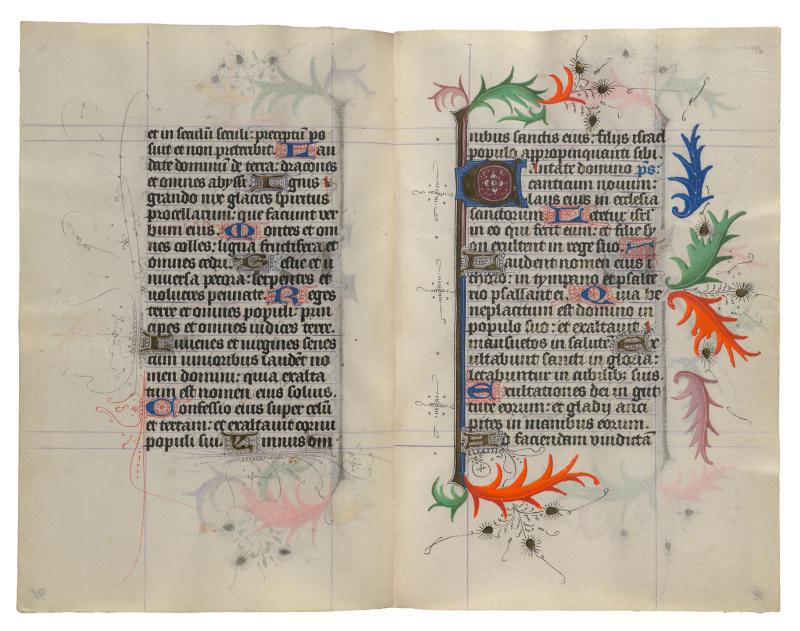 et in seculū seculi: preceptū po
suit et non preteribit. Lau
date dominū de terra: dracones
et omnes abyssi. Ignis
grando nix glacies spiritus
procellarum: que faciunt ver
bum eius. Montes et om
nes colles: ligna fructifera et
omnes cedri. Bestie et u
niversa pecora: serpentes et
volucres pennate. Reges
terre et omnes populi: prin
cipes et omnes iudices terre.
Iuvenes et virgines senes
cum iunioribus laudēt no
men domini: quia exalta
tum est nomen eius solius.
Confessio eius super celū
et terram: et exaltavit cornu
populi sui. Ymnus om
30
nibus sanctis eius: filijs israel
populo appropinquanti sibi.
Cantate domino ps.
canticum novum:
laus eius in ecclesia
sanctorum. Letetur isrl
in eo qui fecit eum: et filie sy
on exultent in rege suo.
Laudent nomen eius i
choro: in tympano et psalte
rio psallant ei. Quia be
neplacitum est domino in
populo suo: et exaltavit
mansuetos in salute. Ex
ultabunt sancti in gloria:
letabuntur in cubilib; suis.
Exultationes dei in gut
ture eorum: et gladij anci
pites in manibus eorum.
Ad faciendam vindictā
31